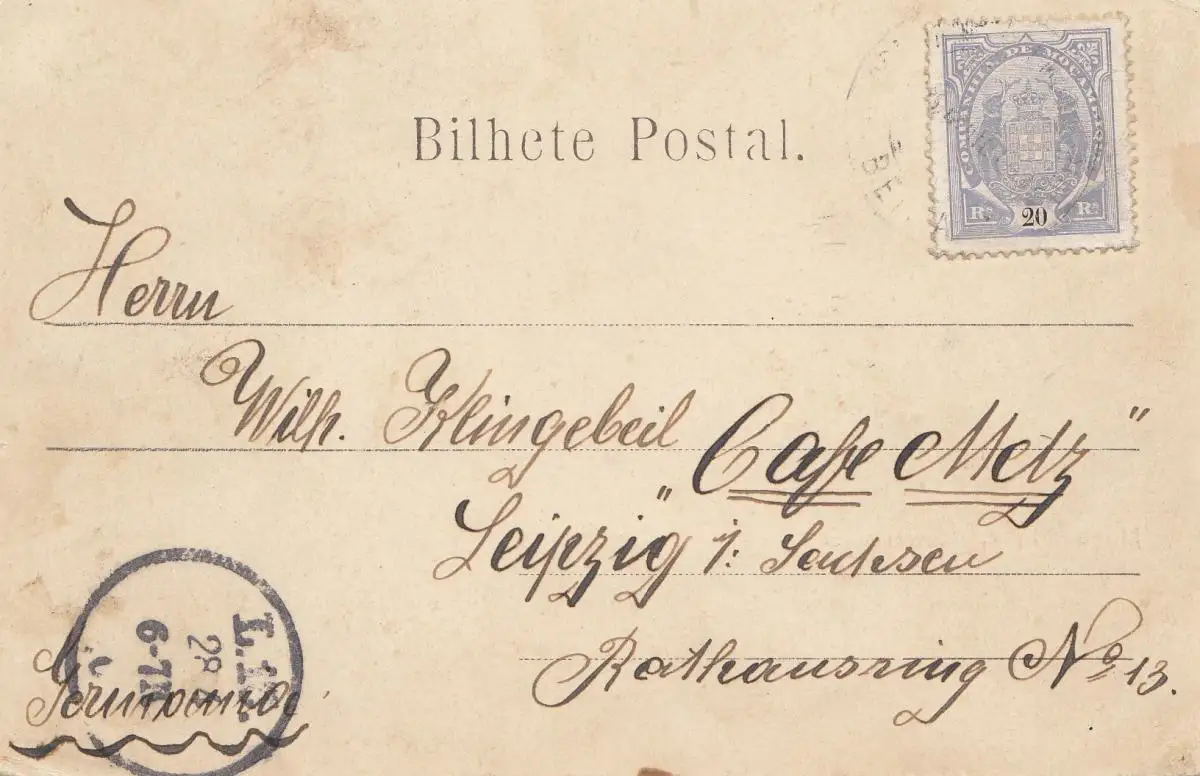 Bilhete Postal.
COMPANHIA DE MOÇAMBIQUE
Rs 20 Rs
Herrn
Wilh. Klingebeil
„Cafe Metz"
Leipzig i: Sachsen
Rathausring No 13.
Germania
28
6-7N